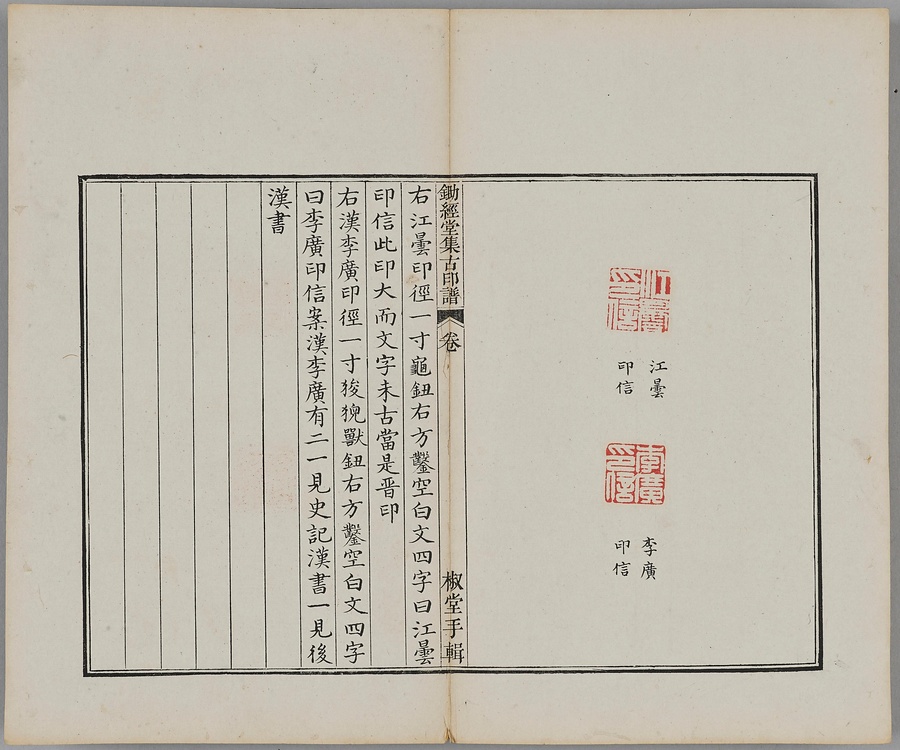 江曇
印信
江曇
印信
李廣
印信
李廣
印信
鋤經堂集古印譜
卷
椒堂手輯
右江曇印徑一寸龜鈕右方鑿空白文四字曰江曇
印信此印大而文字未古當是晋印
右漢李廣印徑一寸狻猊獸鈕右方鑿空白文四字
曰李廣印信案漢李廣有二一見史記漢書一見後
漢書